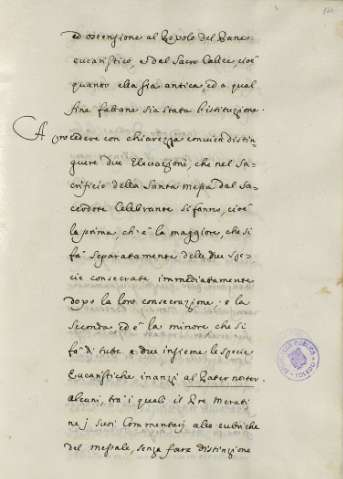 ed ostensione al Popolo del Pane
eucaristico, e del Sacro Calice, cioè
quanto ella sia antica, ed a qual
fine fattane sia stata l'istituzione.
A procedere con chiarezza convien distin,
guere due Elevazioni, che nel Sa=
crificio della Santa messa dal Sa=
cerdote Celebrante si fanno, cioè
la prima, ch'è la maggiore, che si
fà separatamente delle due spe=
cie consecrate immediattamente
dopo la loro consecrazione: e la
seconda, ed è la minore che si
fà di tutte e due insieme le specie
Eucaristiche inanzi al Pater noster.
alcuni, trà i quali il Pre Merati
ne j suoi Commentarj alle rubriche
del messale, senza fare distinzione
BIBLIOTECA PUBLICA
TOLEDO